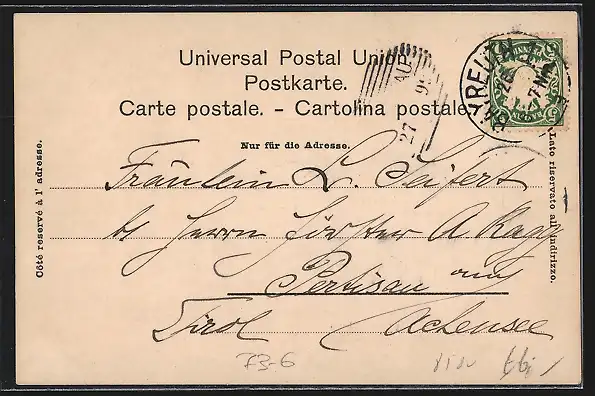 Universal Postal Union
Postkarte.
Carte postale. - Cartolina postale.
Nur für die Adresse.
Côté reservé à l'adresse.
Lato riservato all'indirizzo.
BAYREUTH
27 AU 99
Fräulein L. Seifert
bei Herrn Förster A
Pertisau am
Tirol Achensee
73-6